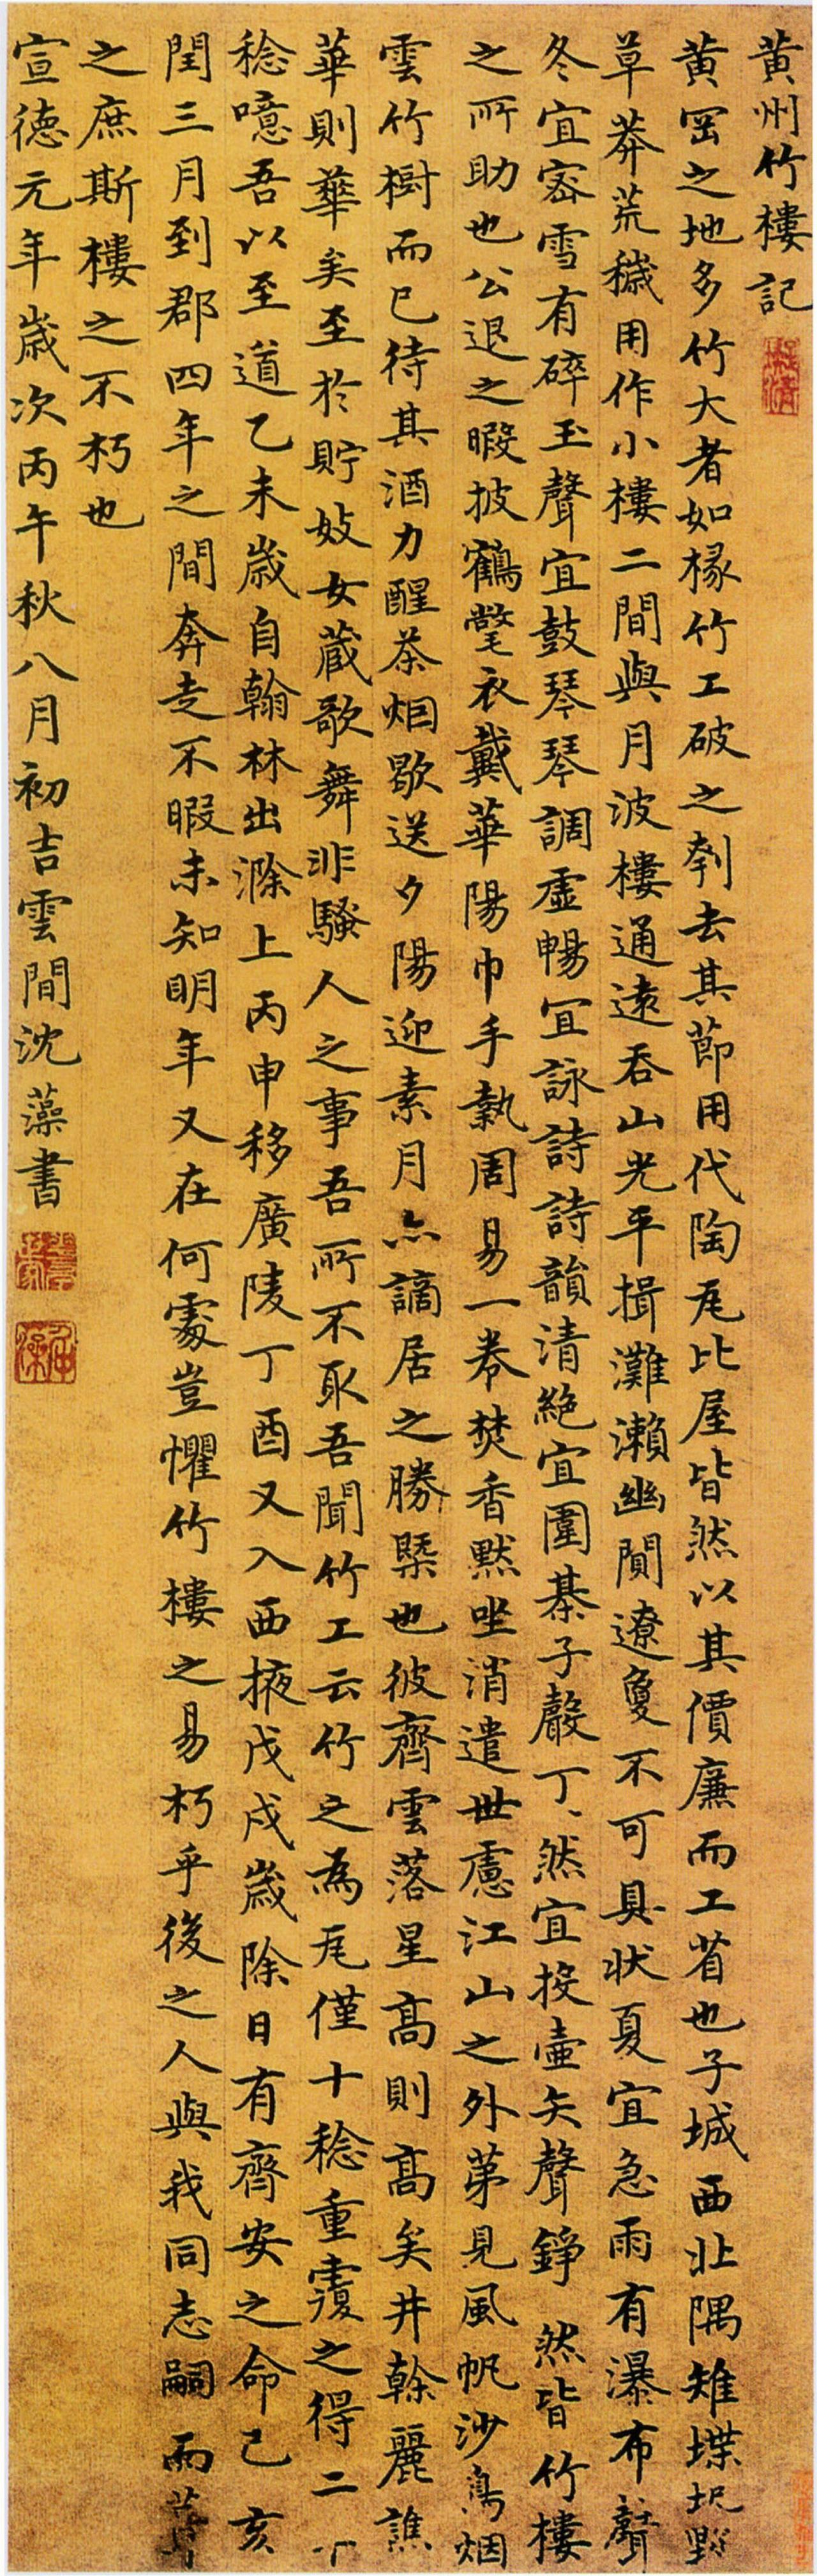 黄州竹樓記
黄岡之地多竹大者如椽竹工破之刳去其節用代陶瓦比屋皆然以其價廉而工省也子城西北隅雉堞圮毀
草莽荒穢用作小樓二間與月波樓通遠吞山光平挹灘瀨幽闃遼敻不可具狀夏宜急雨有瀑布聲
冬宜密雪有碎玉聲宜鼓琴琴調虛暢宜詠詩詩韻清絶宜圍棊子聲丁丶然宜投壷矢聲錚然皆竹樓
之所助也公退之暇披鶴氅衣戴華陽巾手執周易一卷焚香默坐消遣世慮江山之外苐見風帆沙鳥烟
雲竹樹而已待其酒力醒茶烟歇送夕陽迎素月亦謫居之勝槩也彼齊雲落星髙則髙矣井榦麗譙
華則華矣至於貯妓女藏歌舞非騷人之事吾所不取吾聞竹工云竹之為瓦僅十稔重覆之得二十
稔噫吾以至道乙未歲自翰林出滁上丙申移廣陵丁酉又入西掖戊戌歲除日有齊安之命己亥
閏三月到郡四年之間奔走不暇未知明年又在何處豈懼竹樓之易朽乎後之人與我同志嗣而葺
之庶斯樓之不朽也
宣徳元年歲次丙午秋八月初吉雲間沈藻書